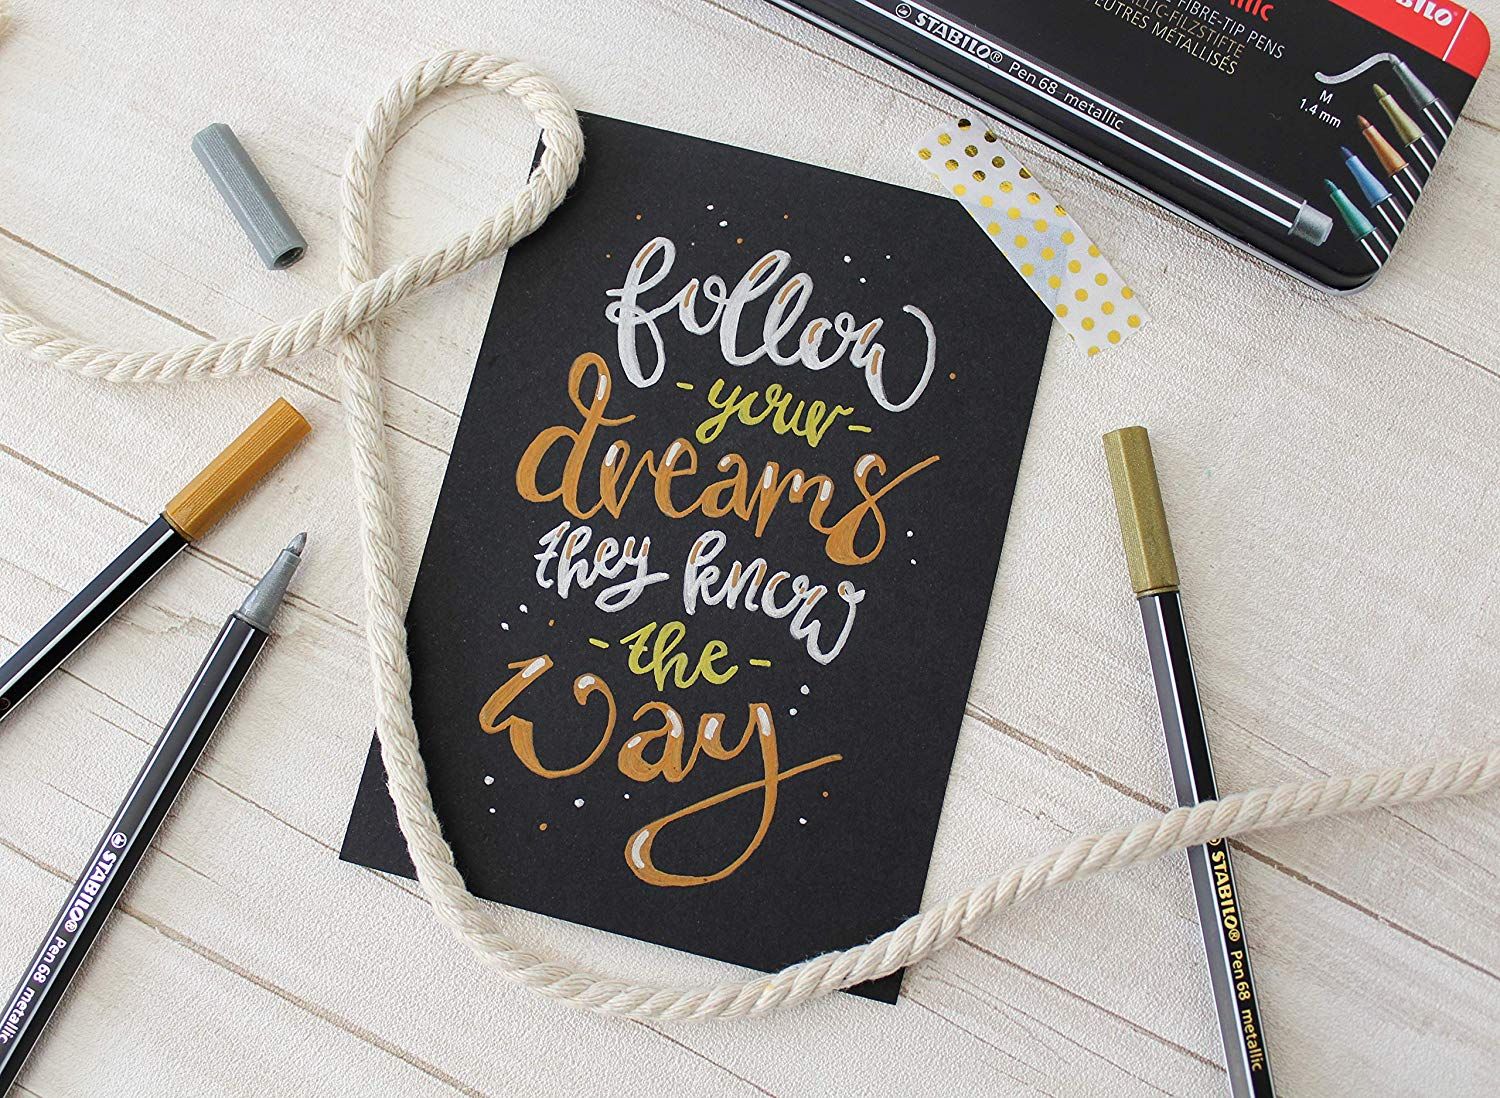 STABILO
llic
FIBRE-TIP PENS
LLIC-FILZSTIFTE
FEUTRES MÉTALLISÉS
STABILO® Pen 68 metallic
M
1.4 mm
follow
- your -
dreams
they know
- the -
way
STABILO® Pen 68 metallic
STABILO® Pen 68 metallic